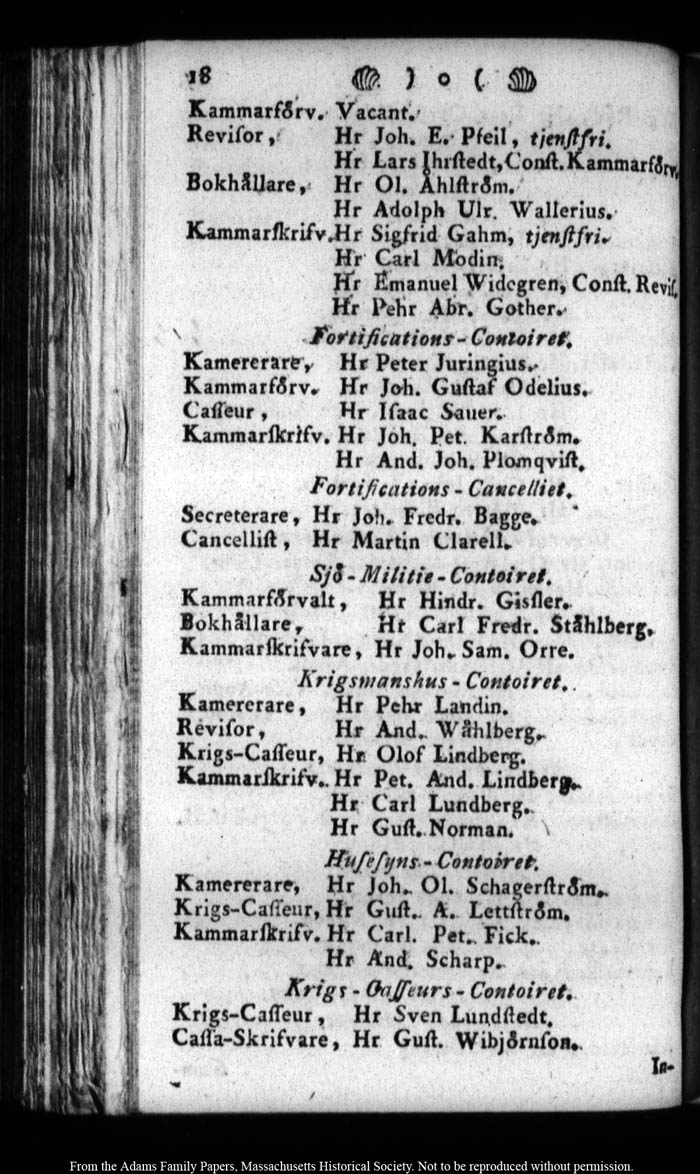 18 ) o (
Kammarförv. Vacant.
Reviſor, Hr Joh. E. Pfeil, tjenſtfri.
Hr Lars Ihrſtedt, Conſt. Kammarförv.
Bokhållare, Hr Ol. Åhlſtröm.
Hr Adolph Ulr. Wallerius.
Kammarſkrifv. Hr Sigfrid Gahm, tjenſtfri.
Hr Carl Modin.
Hr Emanuel Widegren, Conſt. Reviſ.
Hr Pehr Abr. Gother.
Fortifications-Contoiret.
Kamererare, Hr Peter Juringius.
Kammarförv. Hr Joh. Guſtaf Odelius.
Caſſeur, Hr Iſaac Sauer.
Kammarſkrifv. Hr Joh. Pet. Karſtröm.
Hr And. Joh. Plomqviſt.
Fortifications-Cancelliet.
Secreterare, Hr Joh. Fredr. Bagge.
Cancelliſt, Hr Martin Clarell.
Sjö-Militie-Contoiret.
Kammarförvalt, Hr Hindr. Gisſler.
Bokhållare, Hr Carl Fredr. Ståhlberg.
Kammarſkrifvare, Hr Joh. Sam. Orre.
Krigsmanshus-Contoiret.
Kamererare, Hr Pehr Landin.
Reviſor, Hr And. Wåhlberg.
Krigs-Caſſeur, Hr Olof Lindberg.
Kammarſkrifv. Hr Pet. And. Lindberg.
Hr Carl Lundberg.
Hr Guſt. Norman.
Huſeſyns-Contoiret.
Kamererare, Hr Joh. Ol. Schagerſtröm.
Krigs-Caſſeur, Hr Guſt. A. Lettſtröm.
Kammarſkrifv. Hr Carl. Pet. Fick.
Hr And. Scharp.
Krigs-Caſſeurs-Contoiret.
Krigs-Caſſeur, Hr Sven Lundſtedt.
Caſſa-Skrifvare, Hr Guſt. Wibjörnſon.
In-
From the Adams Family Papers, Massachusetts Historical Society. Not to be reproduced without permission.